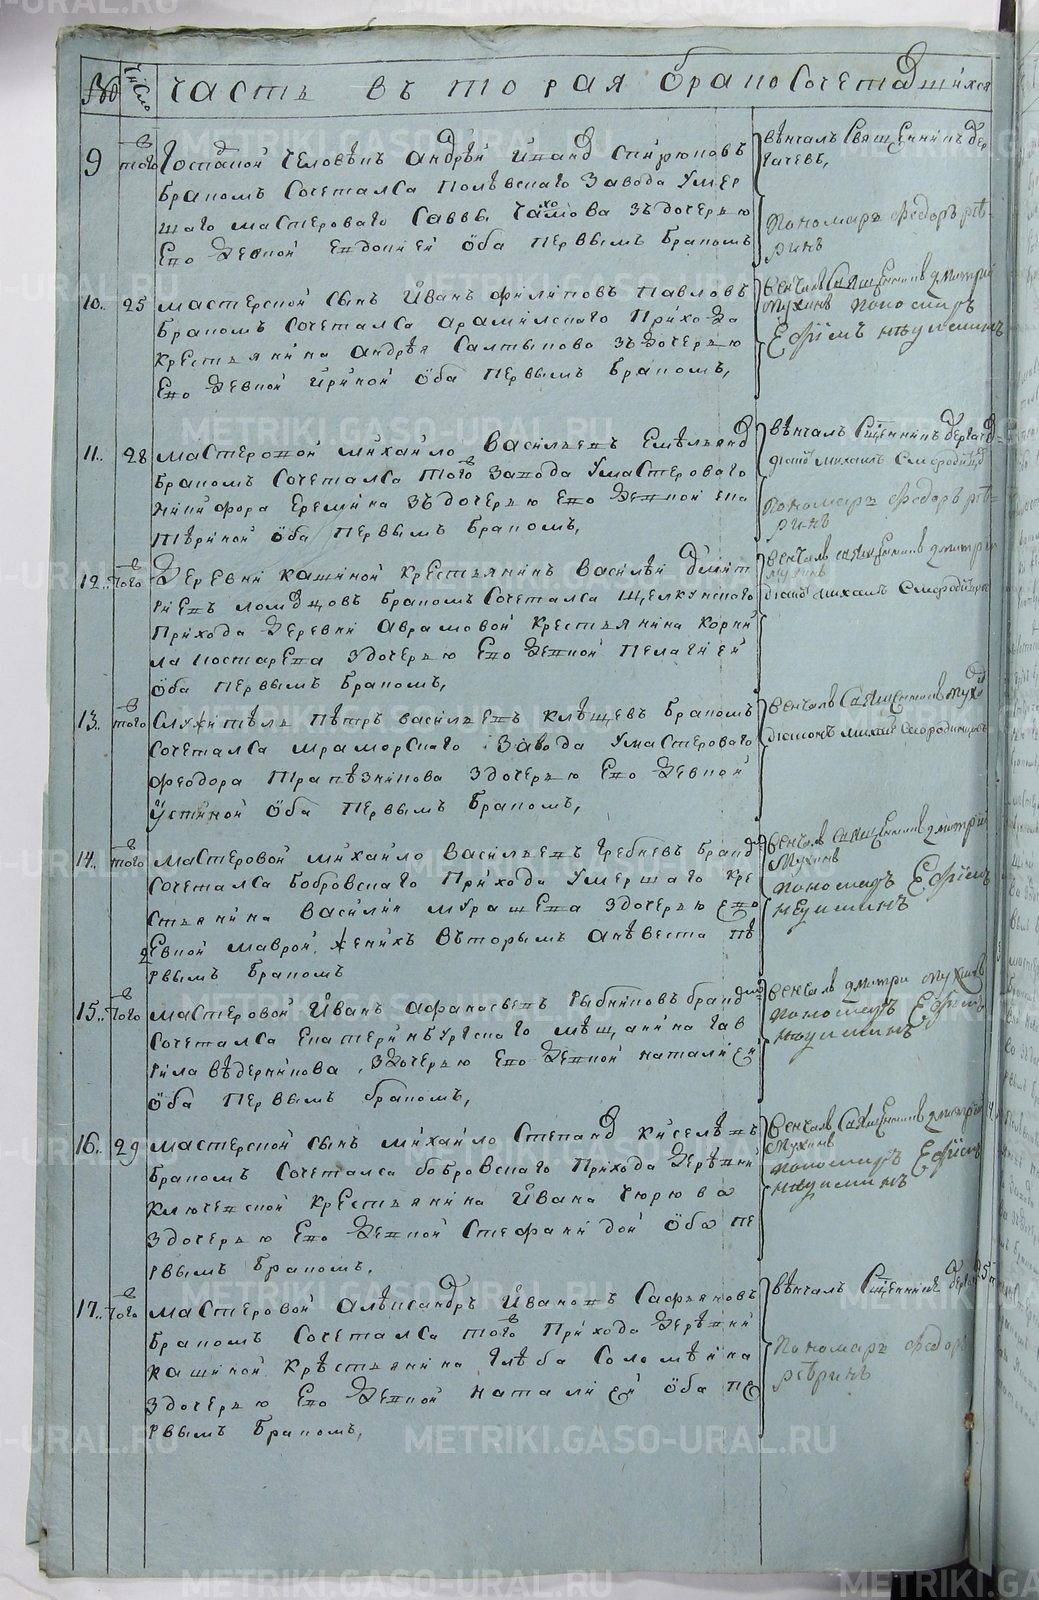 № Число Часть вторая бракосочетавшихся
9 в того Господской человекъ Андрей Иванов Спирюковъ
бракомъ сочетался Полевского завода умер
шаго мастероваго Саввы дочерью
Ево девкой Евдокией оба первымъ бракомъ
венчалъ Священникъ Дер
гачевъ,
Пономарь Федоръ Ре
ринъ
10. 25 Мастерской сынъ Иванъ Филиповъ Павловъ
бракомъ сочетался Арамилского прихода
крестьянина Андрея Салтыкова зъ дочерью
Ево девкой Ириной оба первымъ бракомъ,
венчалъ Священникъ Дмитрий
Мухинъ пономарь
Ефимъ
11. 28 Мастеровой Михайло Васильевъ Емельянов
бракомъ сочетался того завода умастероваго
Никифора Еремина зъ дочерью Ево девкой Ека
териной оба первымъ бракомъ,
венчалъ Сщенникъ Дергачев
дiаконъ Михаилъ Смородинцов
Пономарь Федоръ Ре
ринъ
12. в того Деревни Кашиной крестьянинъ Василей Дмит
риевъ бракомъ сочетался Щелкунского
прихода деревни Аврамовой крестьянина Корни
ла Костарева здочерью Ево девкой Пелагией
оба первымъ бракомъ,
венчалъ священникъ Дмитрий
Мухинъ
дiаконъ Михаилъ Смородинцовъ
13. в того Служитель Петръ Васильевъ Клещевъ бракомъ
сочетался Мраморского завода умастероваго
Феодора Трапезникова здочерью Ево девкой
Устиной оба первымъ бракомъ,
венчалъ Священникъ Мухин
дiаконъ Михаил Смородинцовъ
14. в того Мастеровой Михайло Васильевъ Гребневъ браком
сочетался Бобровского прихода умершаго кре
стьянина Василия Мурашева здочерью ево
девкой Маврой, женихъ вторымъ аневеста пе
рвымъ бракомъ
венчалъ священникъ Дмитрий
Мухинъ
пономарь Ефимъ
15. в того Мастеровой Иванъ Афанасьевъ Рыбниковъ браком
сочетался Екатеринбургского мещанина Гав
рила Ведерникова, здочерью Ево девкой Наталией
оба первымъ бракомъ,
венчалъ Дмитри Мухинъ
пономарь Ефимъ
16. 29 Мастерской сынъ Михайло Степанов Киселевъ
бракомъ сочетался Бобровского прихода деревни
Ключевской крестьянина Ивана Чюрюва
здочерью Ево девкой Стефанидой оба пе
рвымъ бракомъ,
венчалъ Священникъ Дмитрий
Мухинъ
пономарь Ефимъ
17. в того Мастеровой Александръ Ивановъ Сафьяновъ
бракомъ сочетался того прихода деревни
Кашиной крестьянина Глеба Соломеина
здочерью Ево девкой Наталией оба пе
рвымъ бракомъ,
венчалъ Сщенникъ Дергачев
Пономарь Федоръ
Реринъ
METRIKI.GASO-URAL.RU